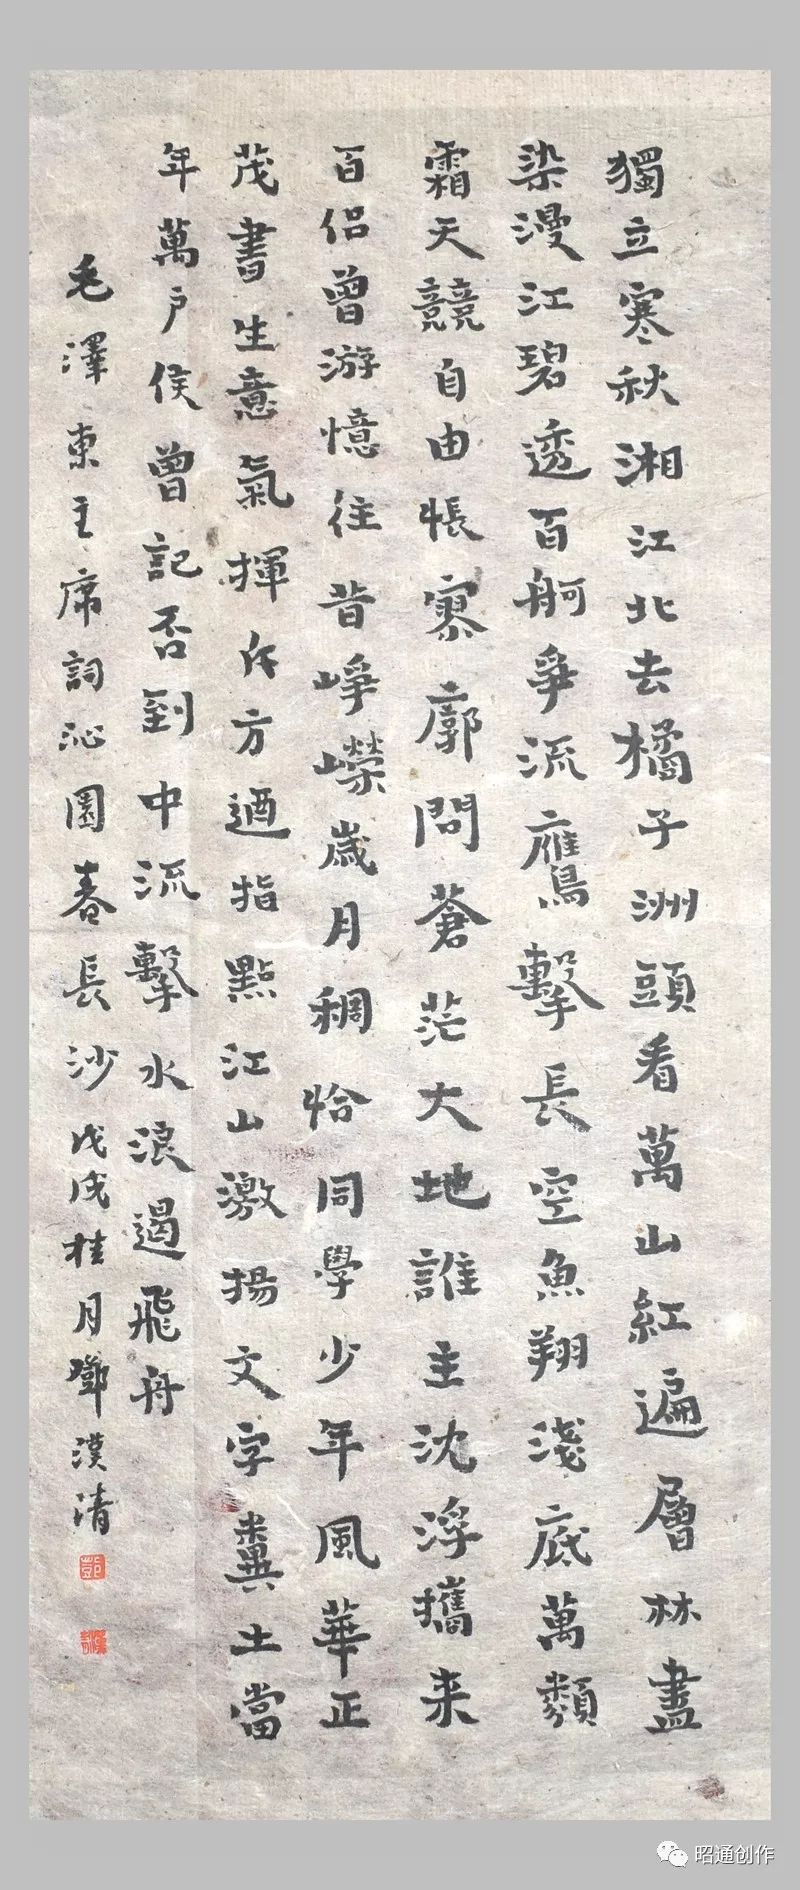 獨立寒秋湘江北去橘子洲頭看萬山紅遍層林盡
染漫江碧透百舸爭流鷹擊長空魚翔淺底萬類
霜天競自由悵寥廓問蒼茫大地誰主沈浮攜来
百侣曾游憶往昔崢嶸歲月稠恰同學少年風華正
茂書生意氣揮斥方遒指點江山激揚文字糞土當
年萬户侯曾記否到中流擊水浪遏飛舟
毛澤東主席詞沁園春長沙戊戌桂月鄧漢清
鄧
昭通创作